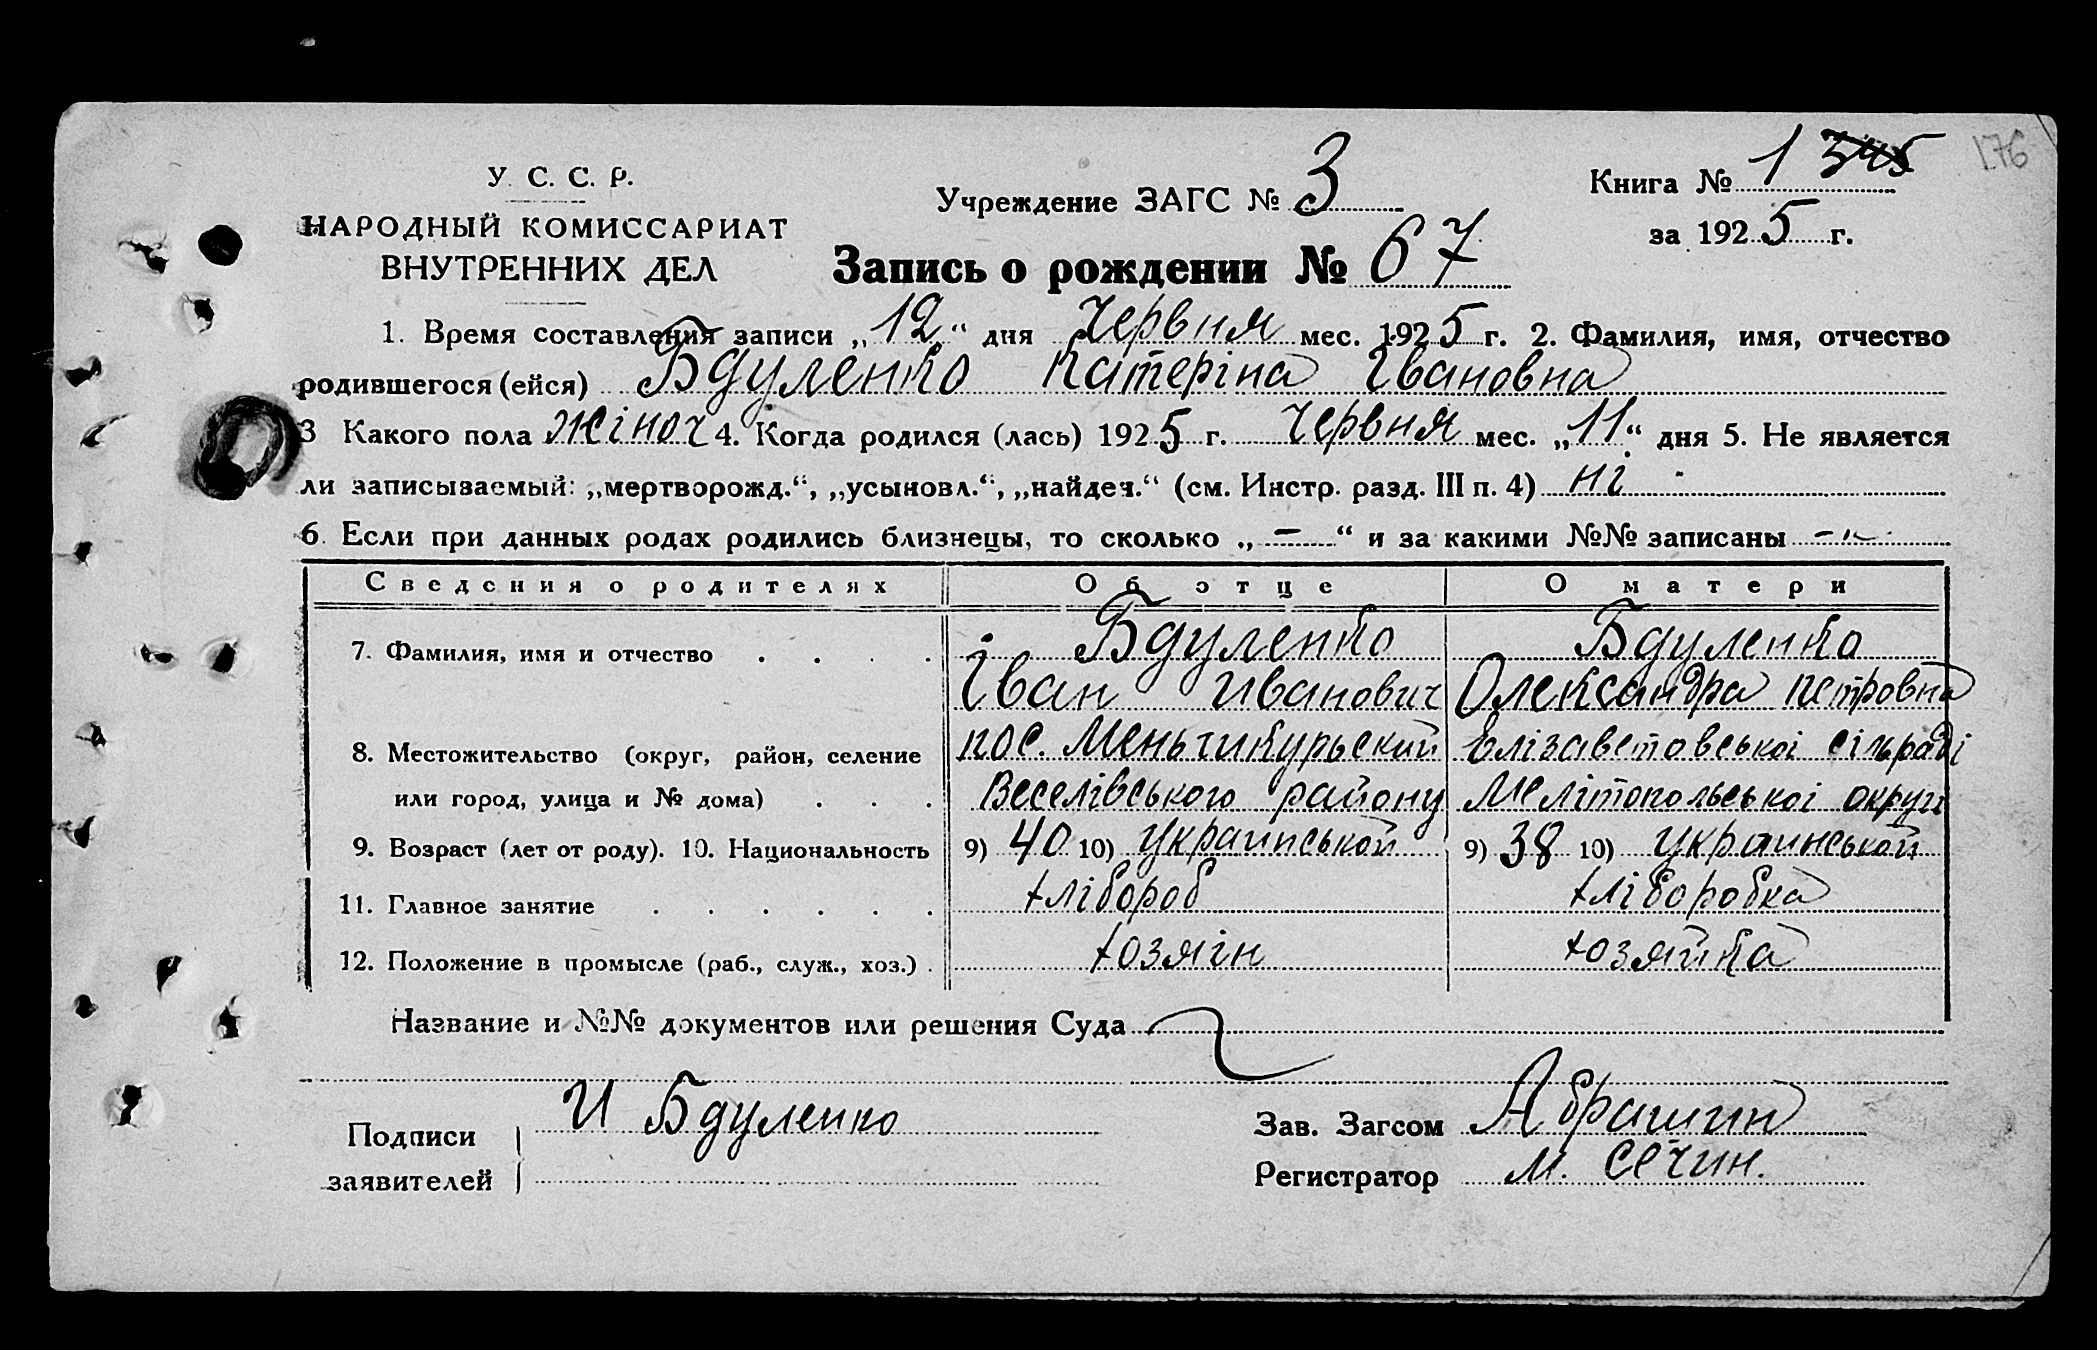 176
У. С. С. Р.
НАРОДНЫЙ КОМИССАРИАТ
ВНУТРЕННИХ ДЕЛ
Учреждение ЗАГС № 3
Книга № 1
за 1925 г.
Запись о рождении № 67
1. Время составления записи „12“ дня Червня мес. 1925 г. 2. Фамилия, имя, отчество
родившегося (ейся) Бдуленко Катеріна Івановна
3 Какого пола жіноч 4. Когда родился (лась) 1925 г. Червня мес. „11“ дня 5. Не является
ли записываемый: „мертворожд.“, „усыновл.“, „найден.“ (см. Инстр. разд. III п. 4) ні
6. Если при данных родах родились близнецы, то сколько „—“ и за какими №№ записаны —"—
Сведения о родителях Об отце О матери
7. Фамилия, имя и отчество Бдуленко Бдуленко
Іван Иванович Олександра Петровна
8. Местожительство (округ, район, селение пос. Меньчикурьский Елізаветовської сільраді
или город, улица и № дома) Веселівського району Мелітопольської округи
9. Возраст (лет от роду). 10. Национальность 9) 40 10) Украинськой 9) 38 10) Украинськой
11. Главное занятие хлібороб хліборобка
12. Положение в промысле (раб., служ., хоз.) хозяін хозяйка
Название и №№ документов или решения Суда
Подписи И Бдуленко Зав. Загсом Абрашин
заявителей Регистратор М. Сечин.